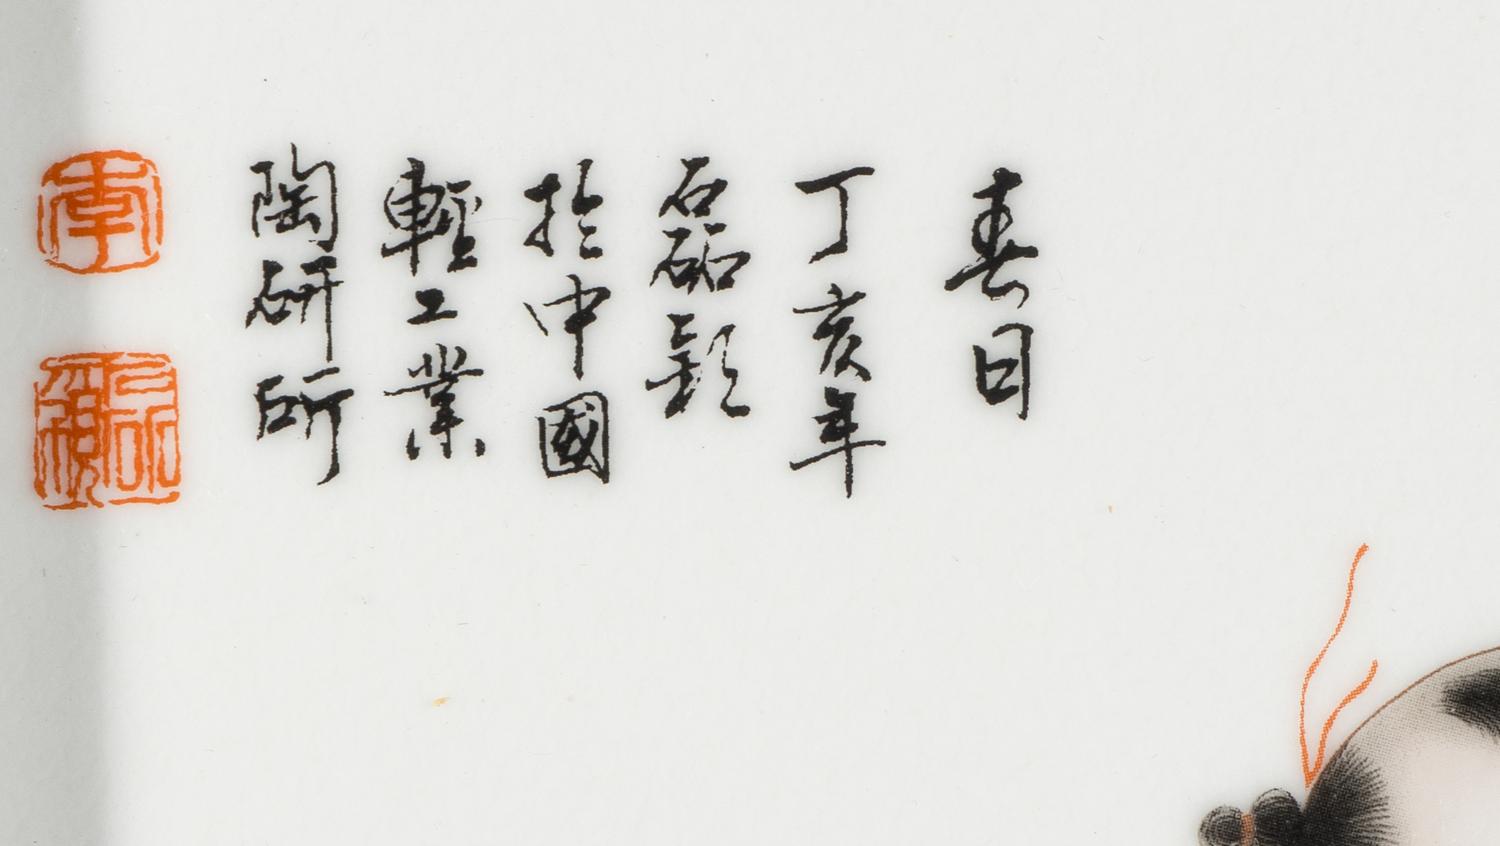 春日
丁亥年
磊颖
於中國
輕工業
陶研所
李